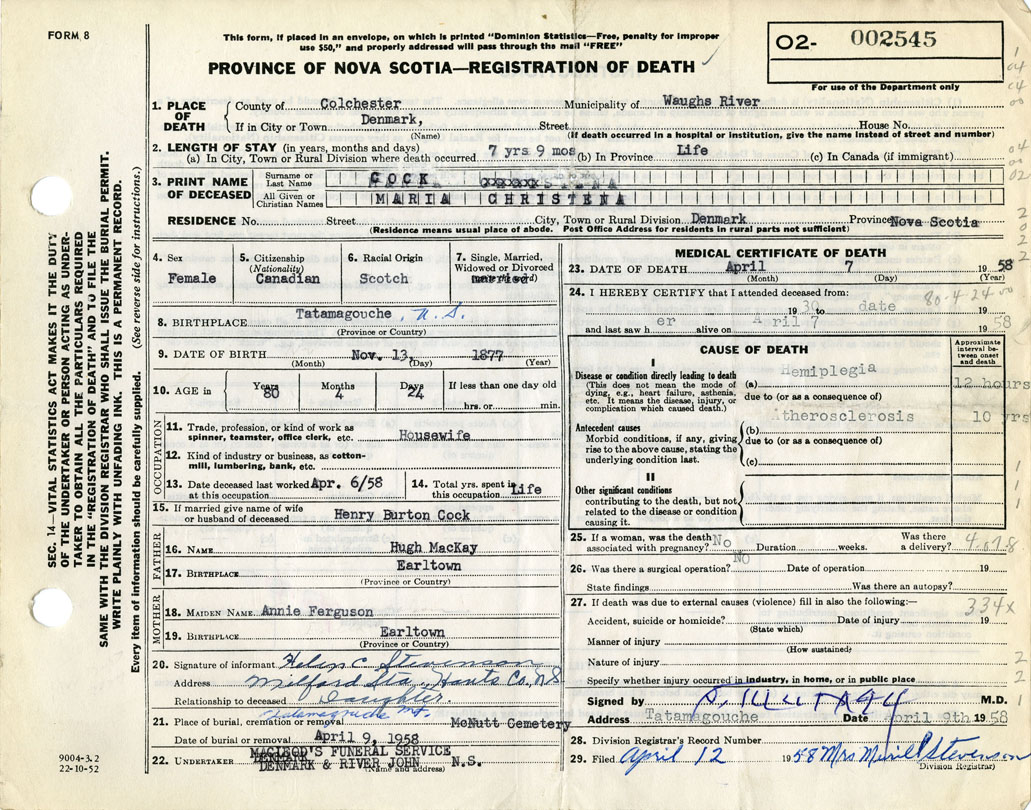 FORM 8
This form, if placed in an envelope, on which is printed "Dominion Statistics—Free, penalty for improper
use $50," and properly addressed will pass through the mail "FREE"
PROVINCE OF NOVA SCOTIA—REGISTRATION OF DEATH
02- 002545
For use of the Department only
1. PLACE OF DEATH County of Colchester Municipality of Waughs River
If in City or Town Denmark, Street House No.
(Name) (If death occurred in a hospital or institution, give the name instead of street and number)
2. LENGTH OF STAY (in years, months and days)
(a) In City, Town or Rural Division where death occurred 7 yrs 9 mos (b) In Province Life (c) In Canada (if immigrant)
3. PRINT NAME OF DECEASED
Surname or Last Name COCK
All Given or Christian Names MARIA CHRISTENA
RESIDENCE No. Street City, Town or Rural Division Denmark Province Nova Scotia
(Residence means usual place of abode. Post Office Address for residents in rural parts not sufficient)
4. Sex Female
5. Citizenship (Nationality) Canadian
6. Racial Origin Scotch
7. Single, Married, Widowed or Divorced married
8. BIRTHPLACE Tatamagouche, N.S.
(Province or Country)
9. DATE OF BIRTH Nov. 13, 1877
(Month) (Day) (Year)
10. AGE in Years 80 Months 4 Days 24 If less than one day old
hrs. or min.
OCCUPATION
11. Trade, profession, or kind of work as
spinner, teamster, office clerk, etc. Housewife
12. Kind of industry or business, as cotton-
mill, lumbering, bank, etc.
13. Date deceased last worked at this occupation Apr. 6/58
14. Total yrs. spent in this occupation Life
15. If married give name of wife
or husband of deceased Henry Burton Cock
FATHER
16. NAME Hugh MacKay
17. BIRTHPLACE Earltown
(Province or Country)
MOTHER
18. MAIDEN NAME Annie Ferguson
19. BIRTHPLACE Earltown
(Province or Country)
20. Signature of informant Helen C Stevenson
Address Milford Sta., Hants Co, N.S
Relationship to deceased Daughter
21. Place of burial, cremation or removal Tatamagouche Mt. McNutt Cemetery
Date of burial or removal April 9, 1958
22. UNDERTAKER MACLEOD'S FUNERAL SERVICE
DENMARK & RIVER JOHN N.S.
(Name and address)
MEDICAL CERTIFICATE OF DEATH
23. DATE OF DEATH April 7 1958
(Month) (Day) (Year)
24. I HEREBY CERTIFY that I attended deceased from: 80-4-24-00
1930 to date
and last saw her alive on A ril 7 1958
CAUSE OF DEATH
Approximate interval between onset and death
I
Disease or condition directly leading to death
(This does not mean the mode of
dying, e.g., heart failure, asthenia,
etc. It means the disease, injury, or
complication which caused death.)
(a) Hemiplegia 12 hours
due to (or as a consequence of)
Antecedent causes
Morbid conditions, if any, giving
rise to the above cause, stating the
underlying condition last.
(b) Atherosclerosis 10 yrs
due to (or as a consequence of)
(c)
II
Other significant conditions
contributing to the death, but not
related to the disease or condition
causing it.
25. If a woman, was the death associated with pregnancy? No Duration weeks. Was there a delivery? 4.078
26. Was there a surgical operation? No Date of operation 19
State findings Was there an autopsy?
27. If death was due to external causes (violence) fill in also the following:— 334x
Accident, suicide or homicide? Date of injury 19
(State which)
Manner of injury
(How sustained)
Nature of injury
Specify whether injury occurred in industry, in home, or in public place
Signed by M.D.
Address Tatamagouche Date April 9th 1958
28. Division Registrar's Record Number
29. Filed April 12 1958 Mrs Merle P Stevenson
(Division Registrar)
SEC. 14—VITAL STATISTICS ACT MAKES IT THE DUTY
OF THE UNDERTAKER OR PERSON ACTING AS UNDER-
TAKER TO OBTAIN ALL THE PARTICULARS REQUIRED
IN THE "REGISTRATION OF DEATH" AND TO FILE THE
SAME WITH THE DIVISION REGISTRAR WHO SHALL ISSUE THE BURIAL PERMIT.
WRITE PLAINLY WITH UNFADING INK. THIS IS A PERMANENT RECORD.
Every item of information should be carefully supplied. (See reverse side for instructions.)
9004-3.2
22-10-52